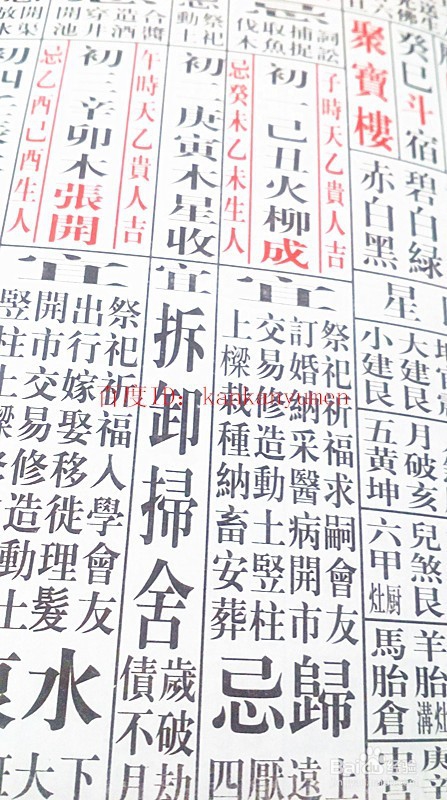 癸巳斗宿
聚寶樓
碧白綠
赤白黑
星
大建艮
小建艮
月破亥
五黃坤
兒煞艮
六甲廚灶
羊胎溝灶
馬胎倉
忌
詞訟
捕捉
取魚
伐木
子時天乙貴人吉
初一己丑火柳成
忌癸未乙未生人
宜
祭祀祈福求嗣會友
訂婚納采醫病開市
交易修造動土竪柱
上樑栽種納畜安葬
歸
忌
遠
厭
四
忌
祭祀
動土
初二庚寅木星收
宜
拆卸掃舍
歲破劫
債不月
合醬
造酒
穿井
開池
午時天乙貴人吉
初三辛卯木張開
忌乙酉己酉生人
宜
祭祀祈福入學會友
出行嫁娶移徙理髮
開市交易修造動土
竪柱上樑
水
下
大
百度ID：kankanyumen
Baidu 经验